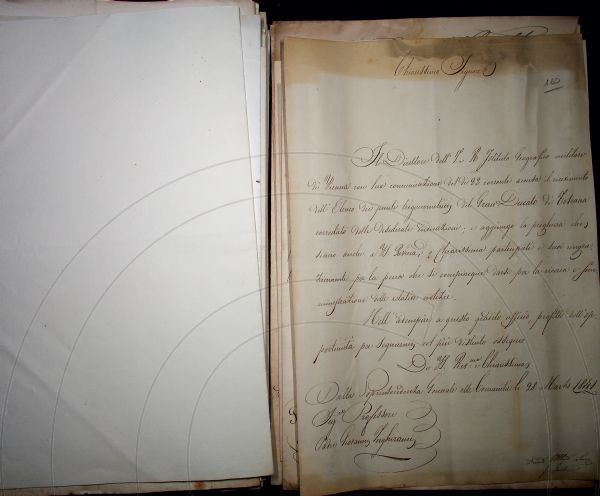 Chiarissimo Signore
180
Il Direttore dell' I. e R. Istituto Geografico militare
di Vienna con sua comunicazione del dì 22 corrente accusa il ricevimento
dell' Elenco dei punti trigonometrici del Gran Ducato di Toscana
corredato delle desiderate dichiarazioni; e aggiunge la preghiera che
siano anche a V. Chiarissima partecipati i suoi ringra=
ziamenti per la pena che si compiacque darsi per la ricerca e som
ministrazione delle relative notizie.
Nell' adempire a questo grato officio profitto dell' op=
portunità per segnarmi col più distinto ossequio
Di V. Rev.ma e Chiarissima
Dalla Soprintendenza Generale alle Comunità li 28 Marzo 1841
Sig.r Professore
Padre Giovanni Inghirami